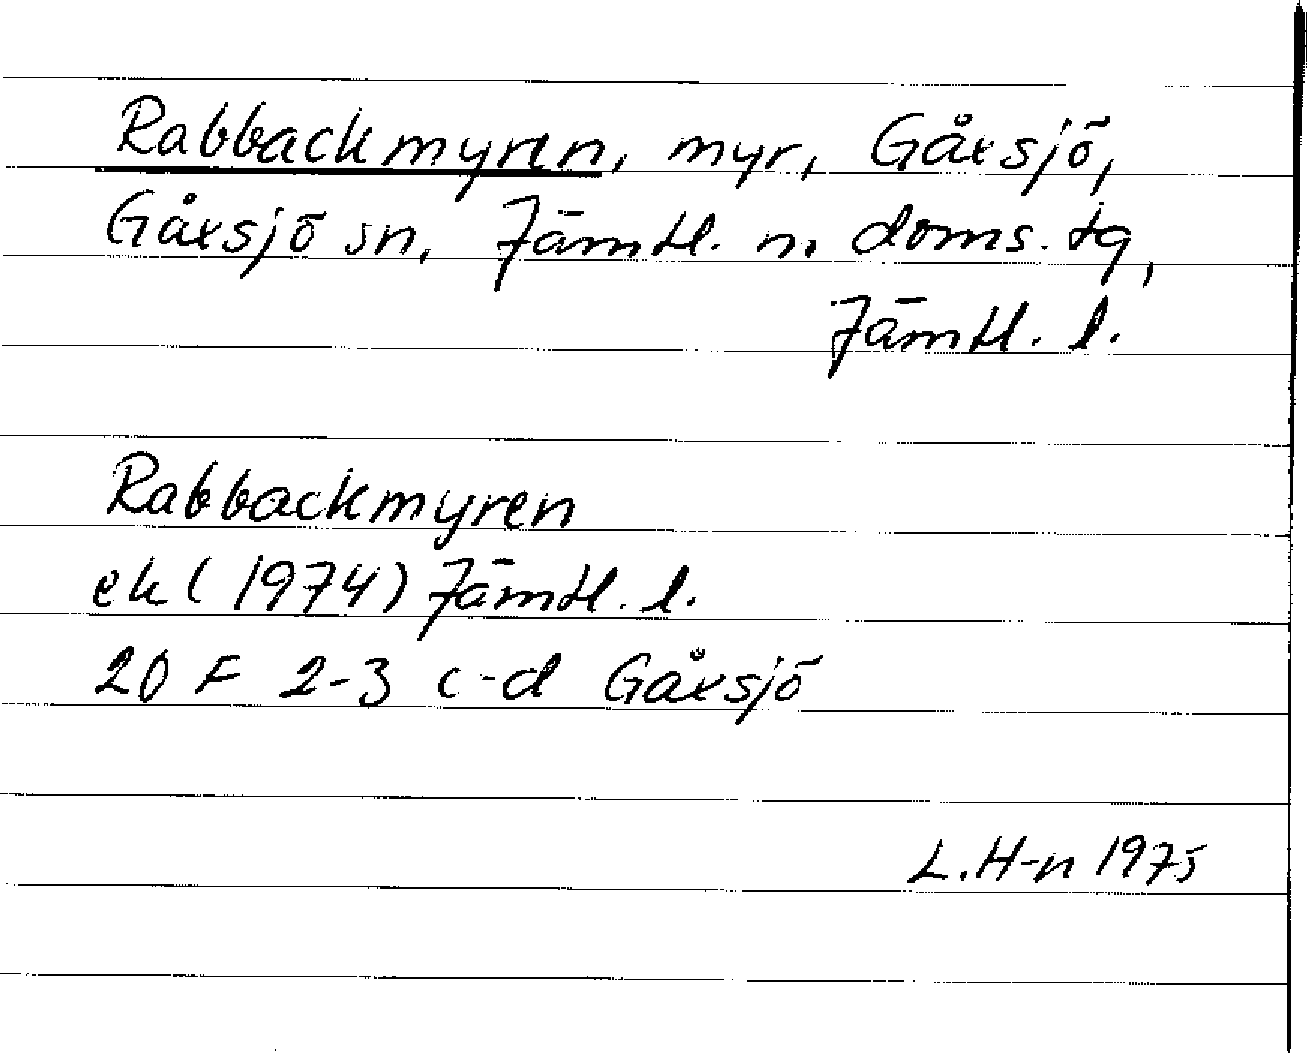 Rabbackmyren, myr, Gåxsjö,
Gåxsjö sn, Jämtl. n. doms. tg,
Jämtl. l.
Rabbackmyren
ek (1974) Jämtl. l.
20 F 2-3 c-d Gåxsjö
L.H-n 1975